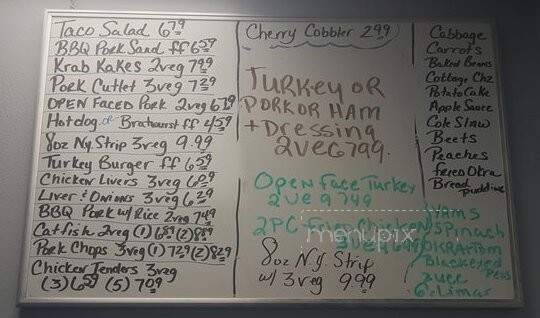 Taco Salad 6 79
BBQ Pork Sand ff 6 59
Krab Kakes 2veg 7 99
Pork Cutlet 3veg 7 29
OPEN FACED Pork 2veg 6 79
Hotdog or Bratwurst ff 4 59
8oz Ny Strip 3veg 9.99
Turkey Burger ff 6 59
Chicken Livers 3veg 6 29
Liver & Onions 3veg 6 29
BBQ Pork w/ Rice 2veg 7 49
Catfish 2veg (1) 6 89 (2) 8 89
Pork Chops 3veg (1) 7 29 (2) 8 29
Chicken Tenders 3veg
(3) 6 59 (5) 7 09
Cherry Cobbler 2 99
TURKEY OR
PORK OR HAM
+ Dressing
2 VEG 7 99
Open Face Turkey
2 VEG 7 49
2PC
menupix
8oz NY Strip
w/ 3 veg 9.99
Cabbage
Carrots
Baked Beans
Cottage Chz
Potato Cake
Apple Sauce
Cole Slaw
Beets
Peaches
Fried Okra
Bread Pudding
YAMS
Spinach
OKRA+Tom
Blackeyed
Peas